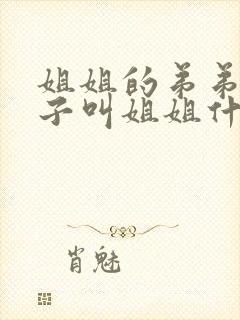 姐姐的弟弟
子叫姐姐什
肖魅